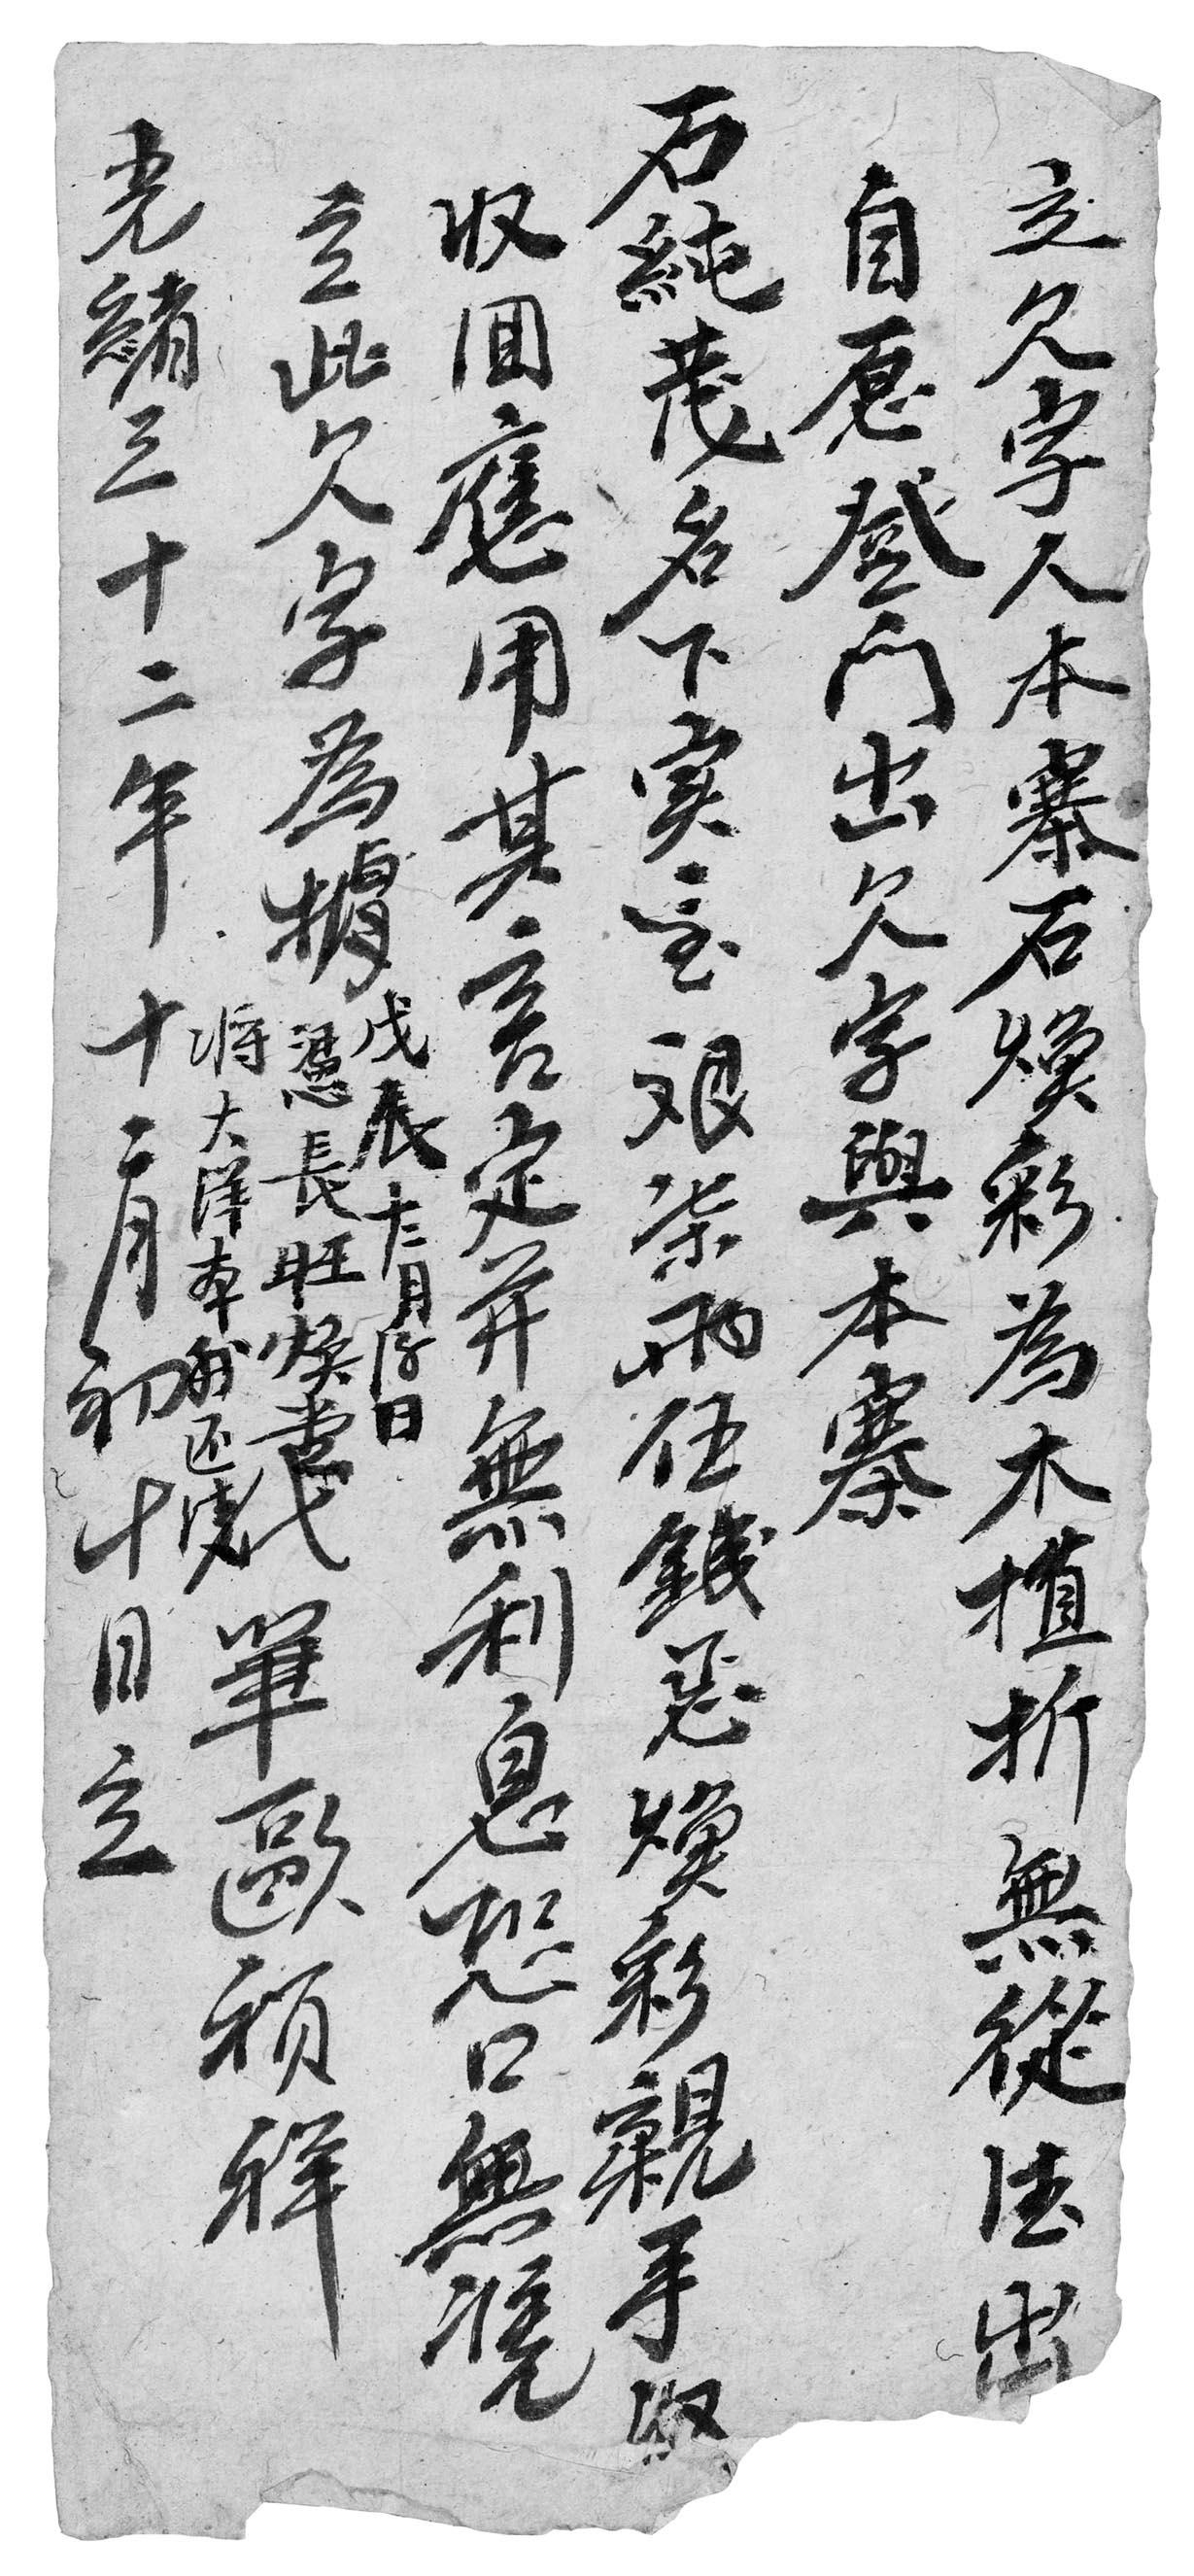 立欠字人本寨石煥彩為木植折無從法出
自愿登門出欠字與本寨
石純茂名下实艮柒兩伍錢其煥彩親手収
収囬應用其言定并無利息恐口無凴
立此欠字為據
戊辰十二月初日
憑長旺煥
代筆歐禎祥
将大洋本利还清
光緒三十二年十二月初十日立